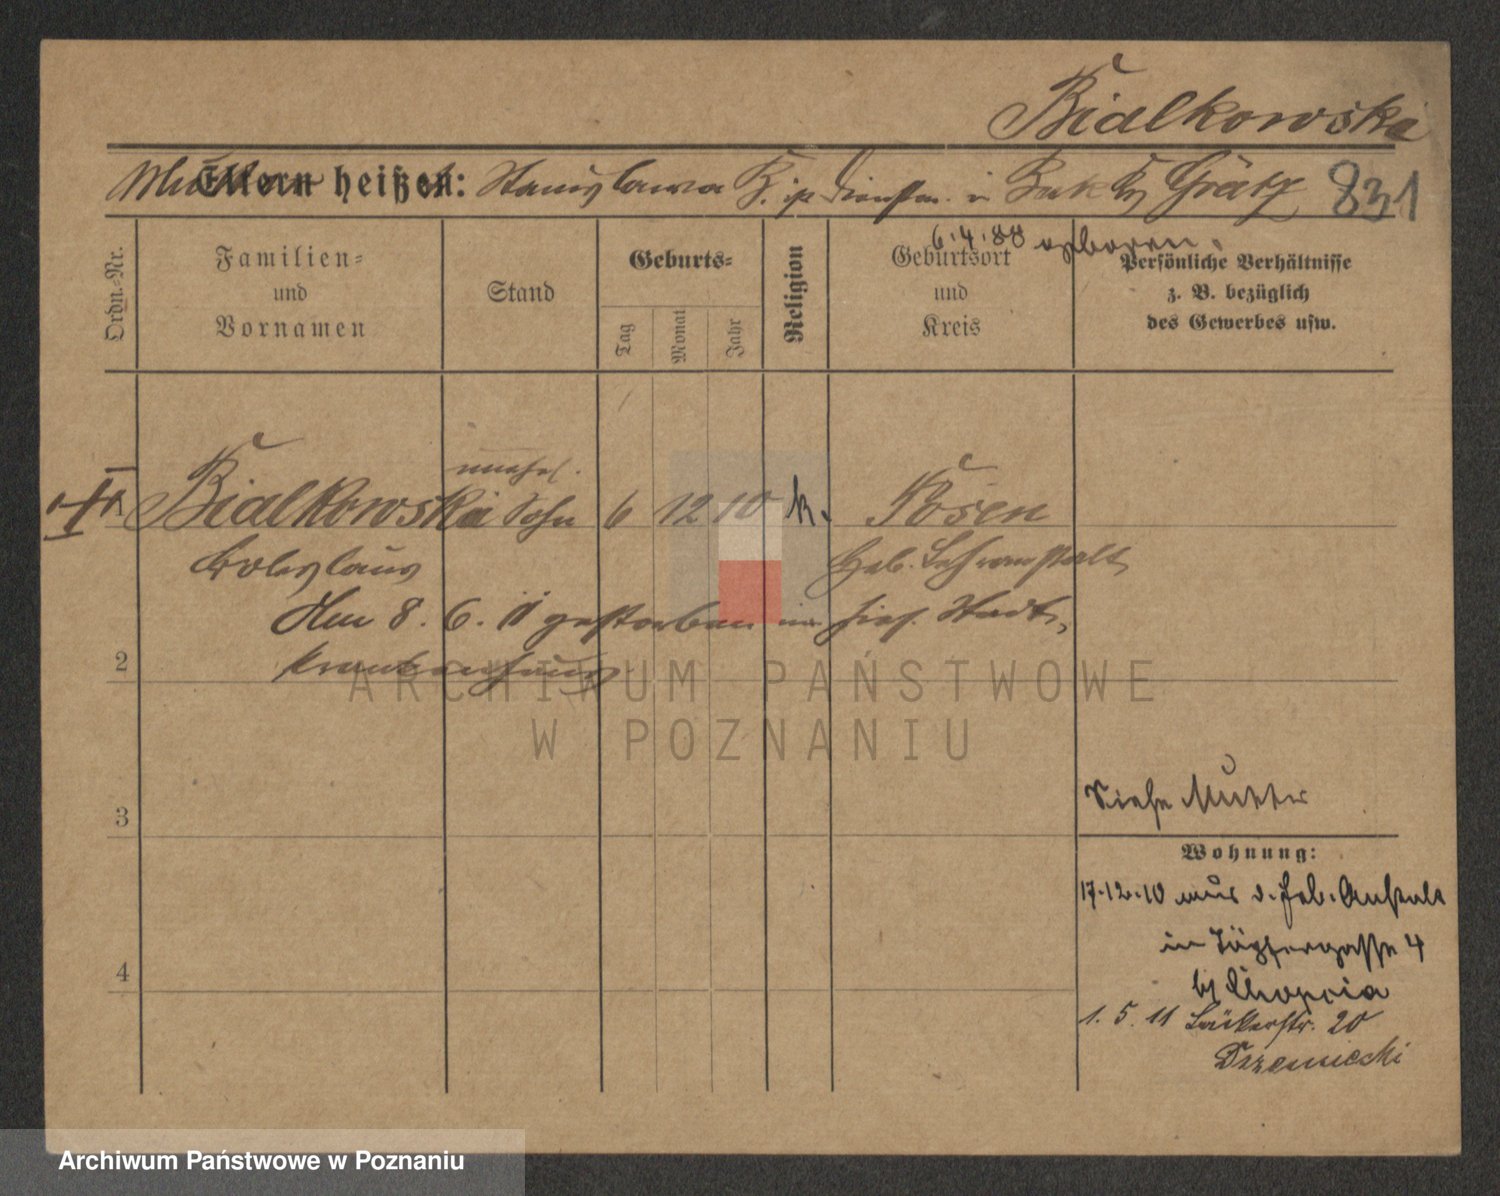 Bialkowska
Mutter Eltern heißen: Stanislawa B. ist Dienstm. in Buk Kr. Grätz 831
6.4.88 geboren.
Ordn.-Nr.
Familien-
und
Vornamen
Stand
Geburts-
Tag
Monat
Jahr
Religion
Geburtsort
und
Kreis
Persönliche Verhältnisse
z. B. bezüglich
des Gewerbes usw.
unehel.
Bialkowski Sohn 6 12 10 k. Posen
Boleslaus Heb. Lehranstalt
Am 8. 6. 11 gestorben im hies. Stadt-
krankenhaus
2
3
4
ARCHIWUM PAŃSTWOWE
W POZNANIU
Siehe Mutter
Wohnung:
17.12.10 aus d. Heb. Anstalt
in Töpfergasse 4
bei
1. 5. 11 Bäckerstr. 20
Archiwum Państwowe w Poznaniu